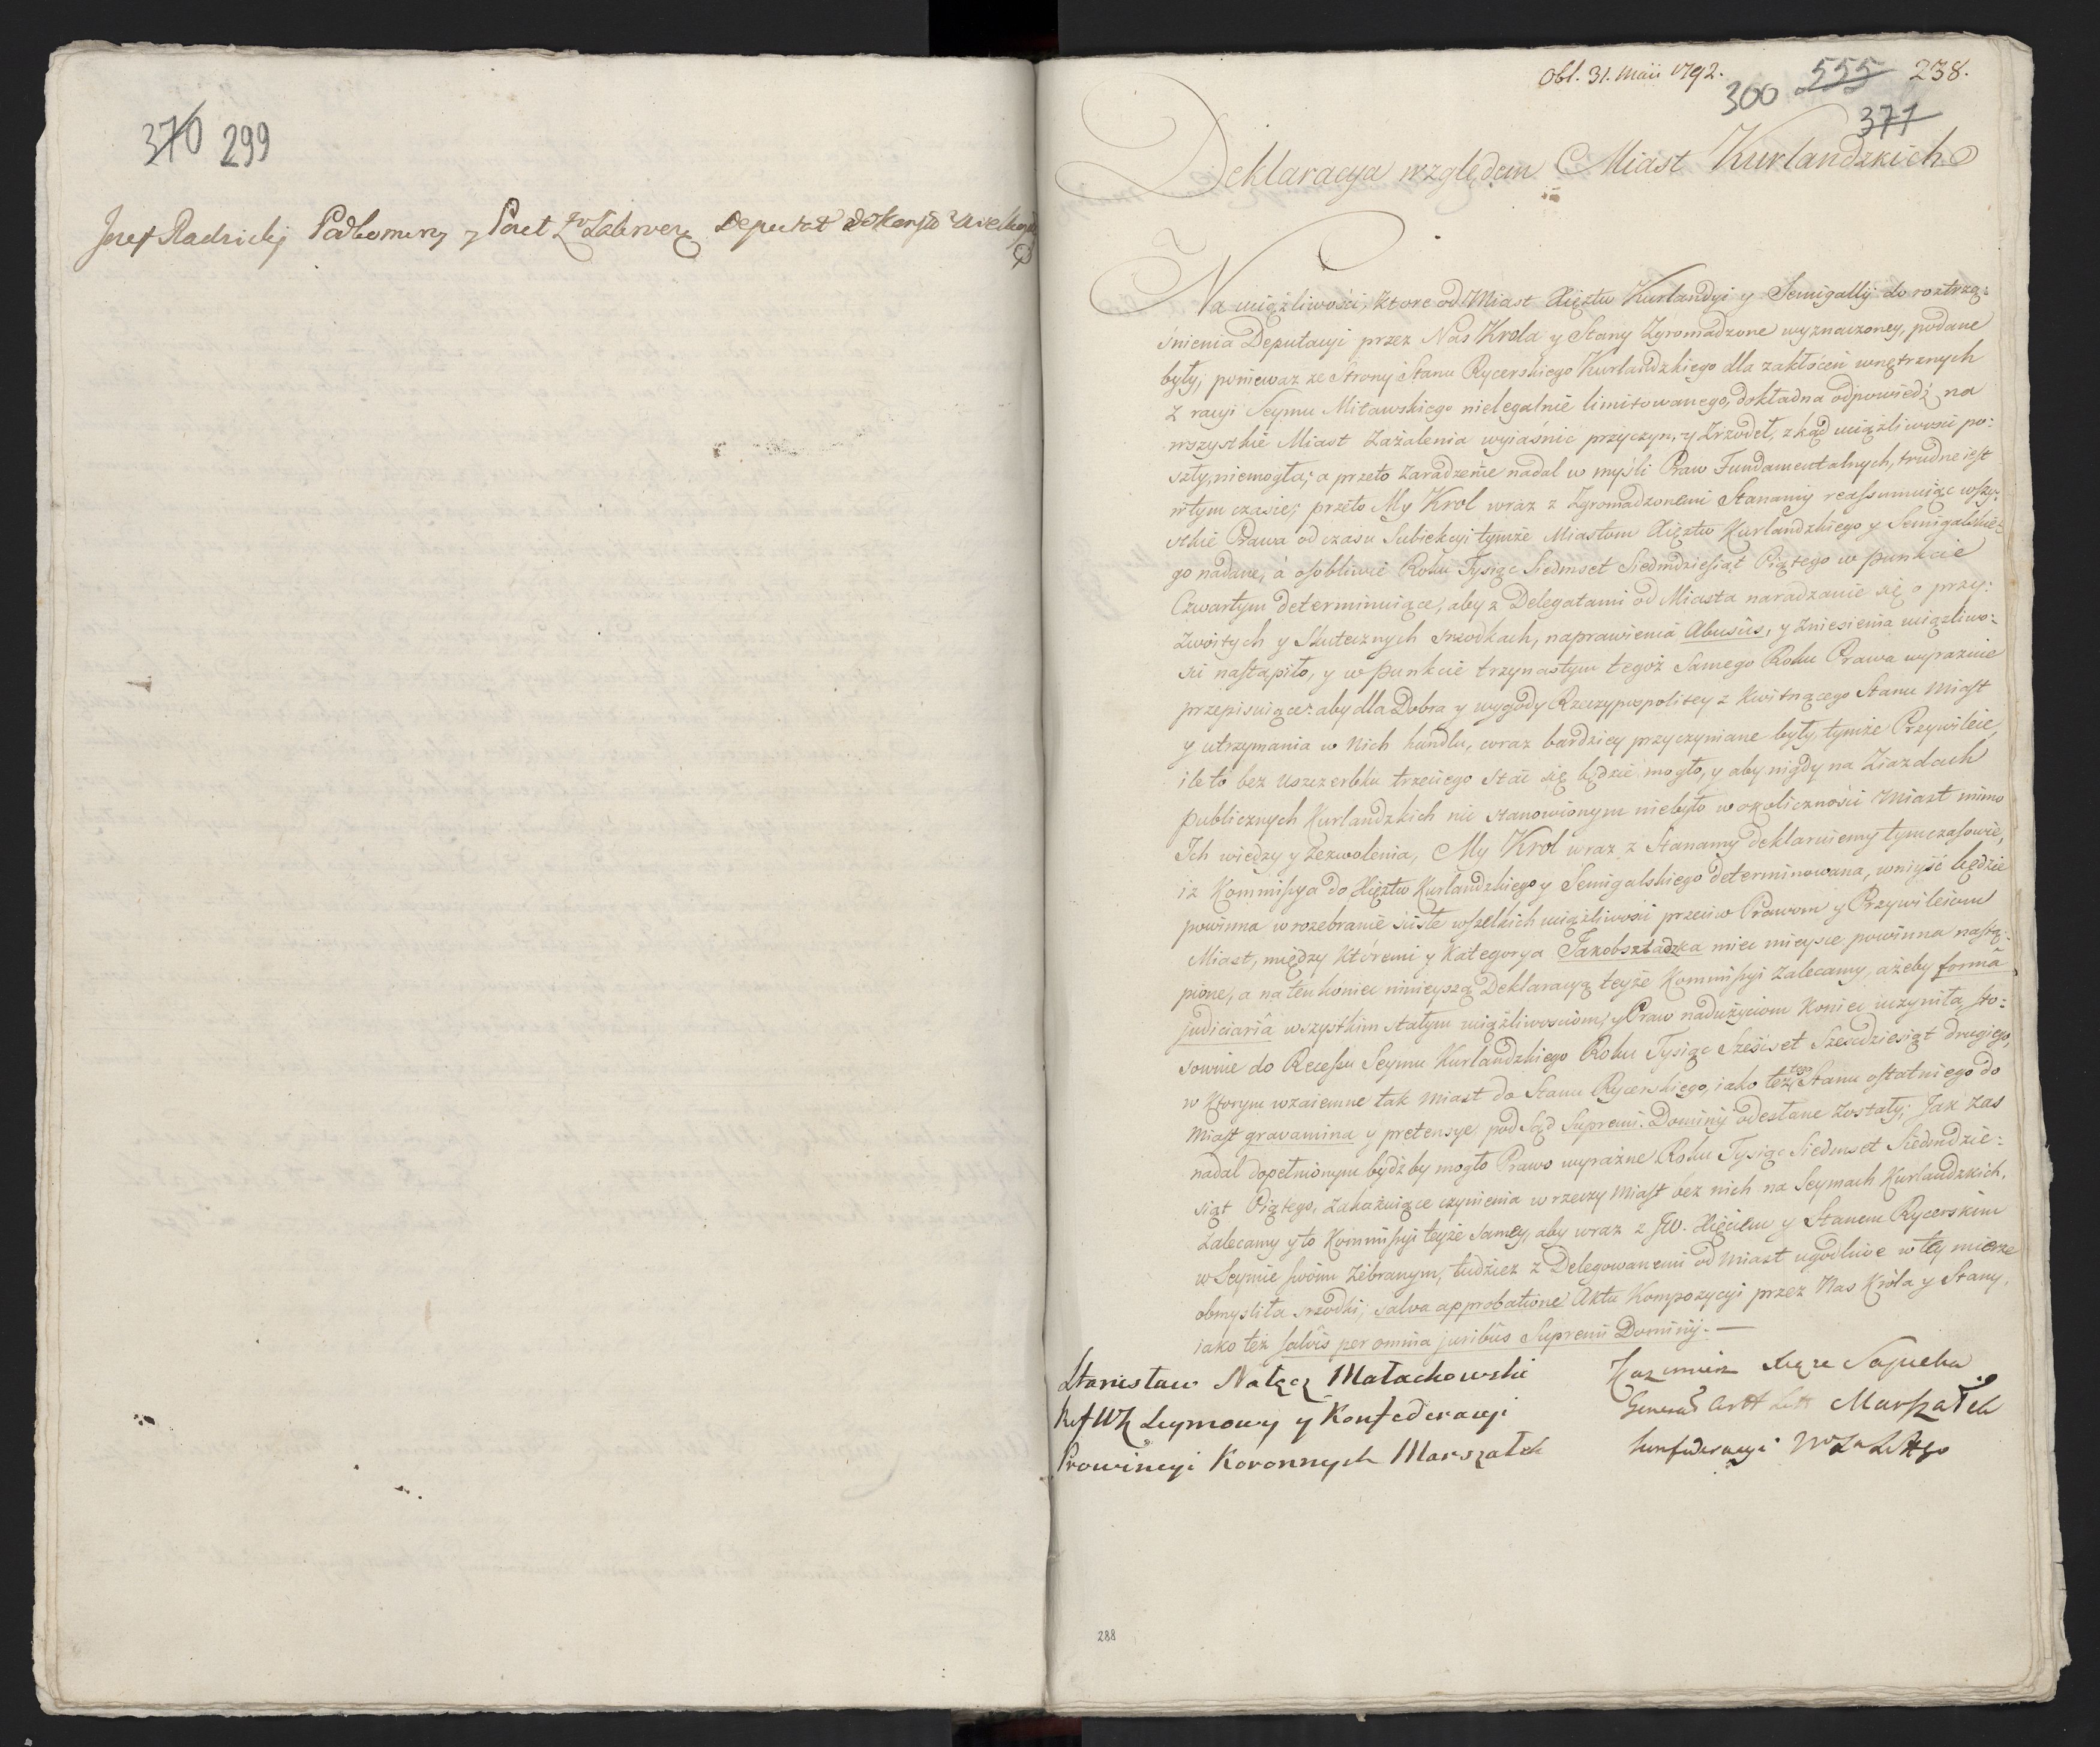 370 299
Jozef Radzicki Podkomorzy y Poseł Zi Zakrocz. Deputat do Konstÿ
Obl. 31. Maii 1792.
300 555 238.
371
Deklaracya względem Miast Kurlandzkich
Na uciążliwości, ktore od Miast Xięztw Kurlandyi y Semigallÿ do roztrzą-
śnienia Deputacyi przez Nas Krola y Stany Zgromadzone wyznaczoney, podane
były; ponieważ ze Strony Stanu Rycerskiego Kurlandzkiego dla zakłóceń wnętrznych
z racyi Seymu Mitawskiego nielegalnie limitowanego, dokładna odpowiedź na
wszystkie Miast Zażalenia wyiaśnic przyczyn, y Zrzodeł, zkąd uciążliwosci po-
szły, niemogła; a przeto zaradzenie nadal w myśli Praw Fundamentalnych, trudne iest
w tym czasie; przeto My Krol wraz z Zgromadzonemi Stanamy reassumuiąc wszy-
stkie Prawa od czasu Subiekcyi tymże Miastom Xięztw Kurlandzkiego y Semigalskie-
go nadane, á osobliwie Roku Tysiąc Siedmset Siedmdziesiąt Piątego w punkcie
Czwartym determinuiące, aby z Delegatami od Miasta naradzanie się o przy-
zwoitych y Skutecznych srzodkach, naprawienia Abusûs, y Zniesienia uciązliwo-
sci nastąpiło, y w punkcie trzynastym tegoż Samego Roku Prawa wyraznie
przepisuiące: aby dla Dobra y wygody Rzeczypospolitey z Kwitnącego Stanu Miast
y utrzymania w Nich handlu, coraz bardziey przyczyniane były, tymże Przywileie,
ile to bez Uszczerbku trzeciego Stać się będzie mogło, y aby nigdy na Ziazdach
publicznych Kurlandzkich nic stanowionym niebyło w okoliczności Miast mimo
Ich wiedzy y Zezwolenia, My Krol wraz z Stanamy deklaruiemy tymczasowie,
iż Kommissya do Xięztw Kurlandzkiego y Semigalskiego determinowana, wniyść będzie
powinna w rozebranie ściste wszelkich uciążliwości przeciw Prawom y Przywileiom
Miast, między Któremi y Kategorya Jakobsztadzka miec mieysce powinna nastą-
pione, a na ten koniec ninieyszą Deklaracyą teyże Kommissyi Zalecamy, ażeby formâ
judiciariâ wszystkim stałym uciążliwosciom, y Praw nadużyciom Koniec uczyniła, sto-
sownie do Recessu Seymu Kurlandzkiego Roku Tysiąc Sześćset Szescdziesiąt drugiego,
w Ktorym wzaiemne tak Miast do Stanu Rycerskiego, iako też tego Stanu ostatniego do
Miast gravamina y pretensye pod Sąd Supremi Dominÿ odesłane Zostały; Jak zas
nadal dopełnionym bydź by mogło Prawo wyraźne Roku Tysiąc Siedmset Siedmdzie-
siąt Piątego, Zakazuiące czynienia w rzeczy Miast bez nich na Seymach Kurlandzkich,
Zalecamy y to Kommissyi teyże Samey, aby wraz z JW. Xięciem y Stanem Rycerskim
w Seymie swoim Zebranym, tudziez z Delegowanemi od Miast ugodliwe w tey mierze
obmysliła srzodki, salva approbatione Aktu Kompozycyi przez Nas Króla y Stany,
iako też salvis per omnia juribus Supremi Dominÿ. —
Stanisław Nałęcz Małachowski
Ref WK Seymowy y Konfederacyi
Prowincyi Koronnych Marszałek
Kazimierz Xiąze Sapieha
Generał Artt Litt Marszałek
konfederacyi
288